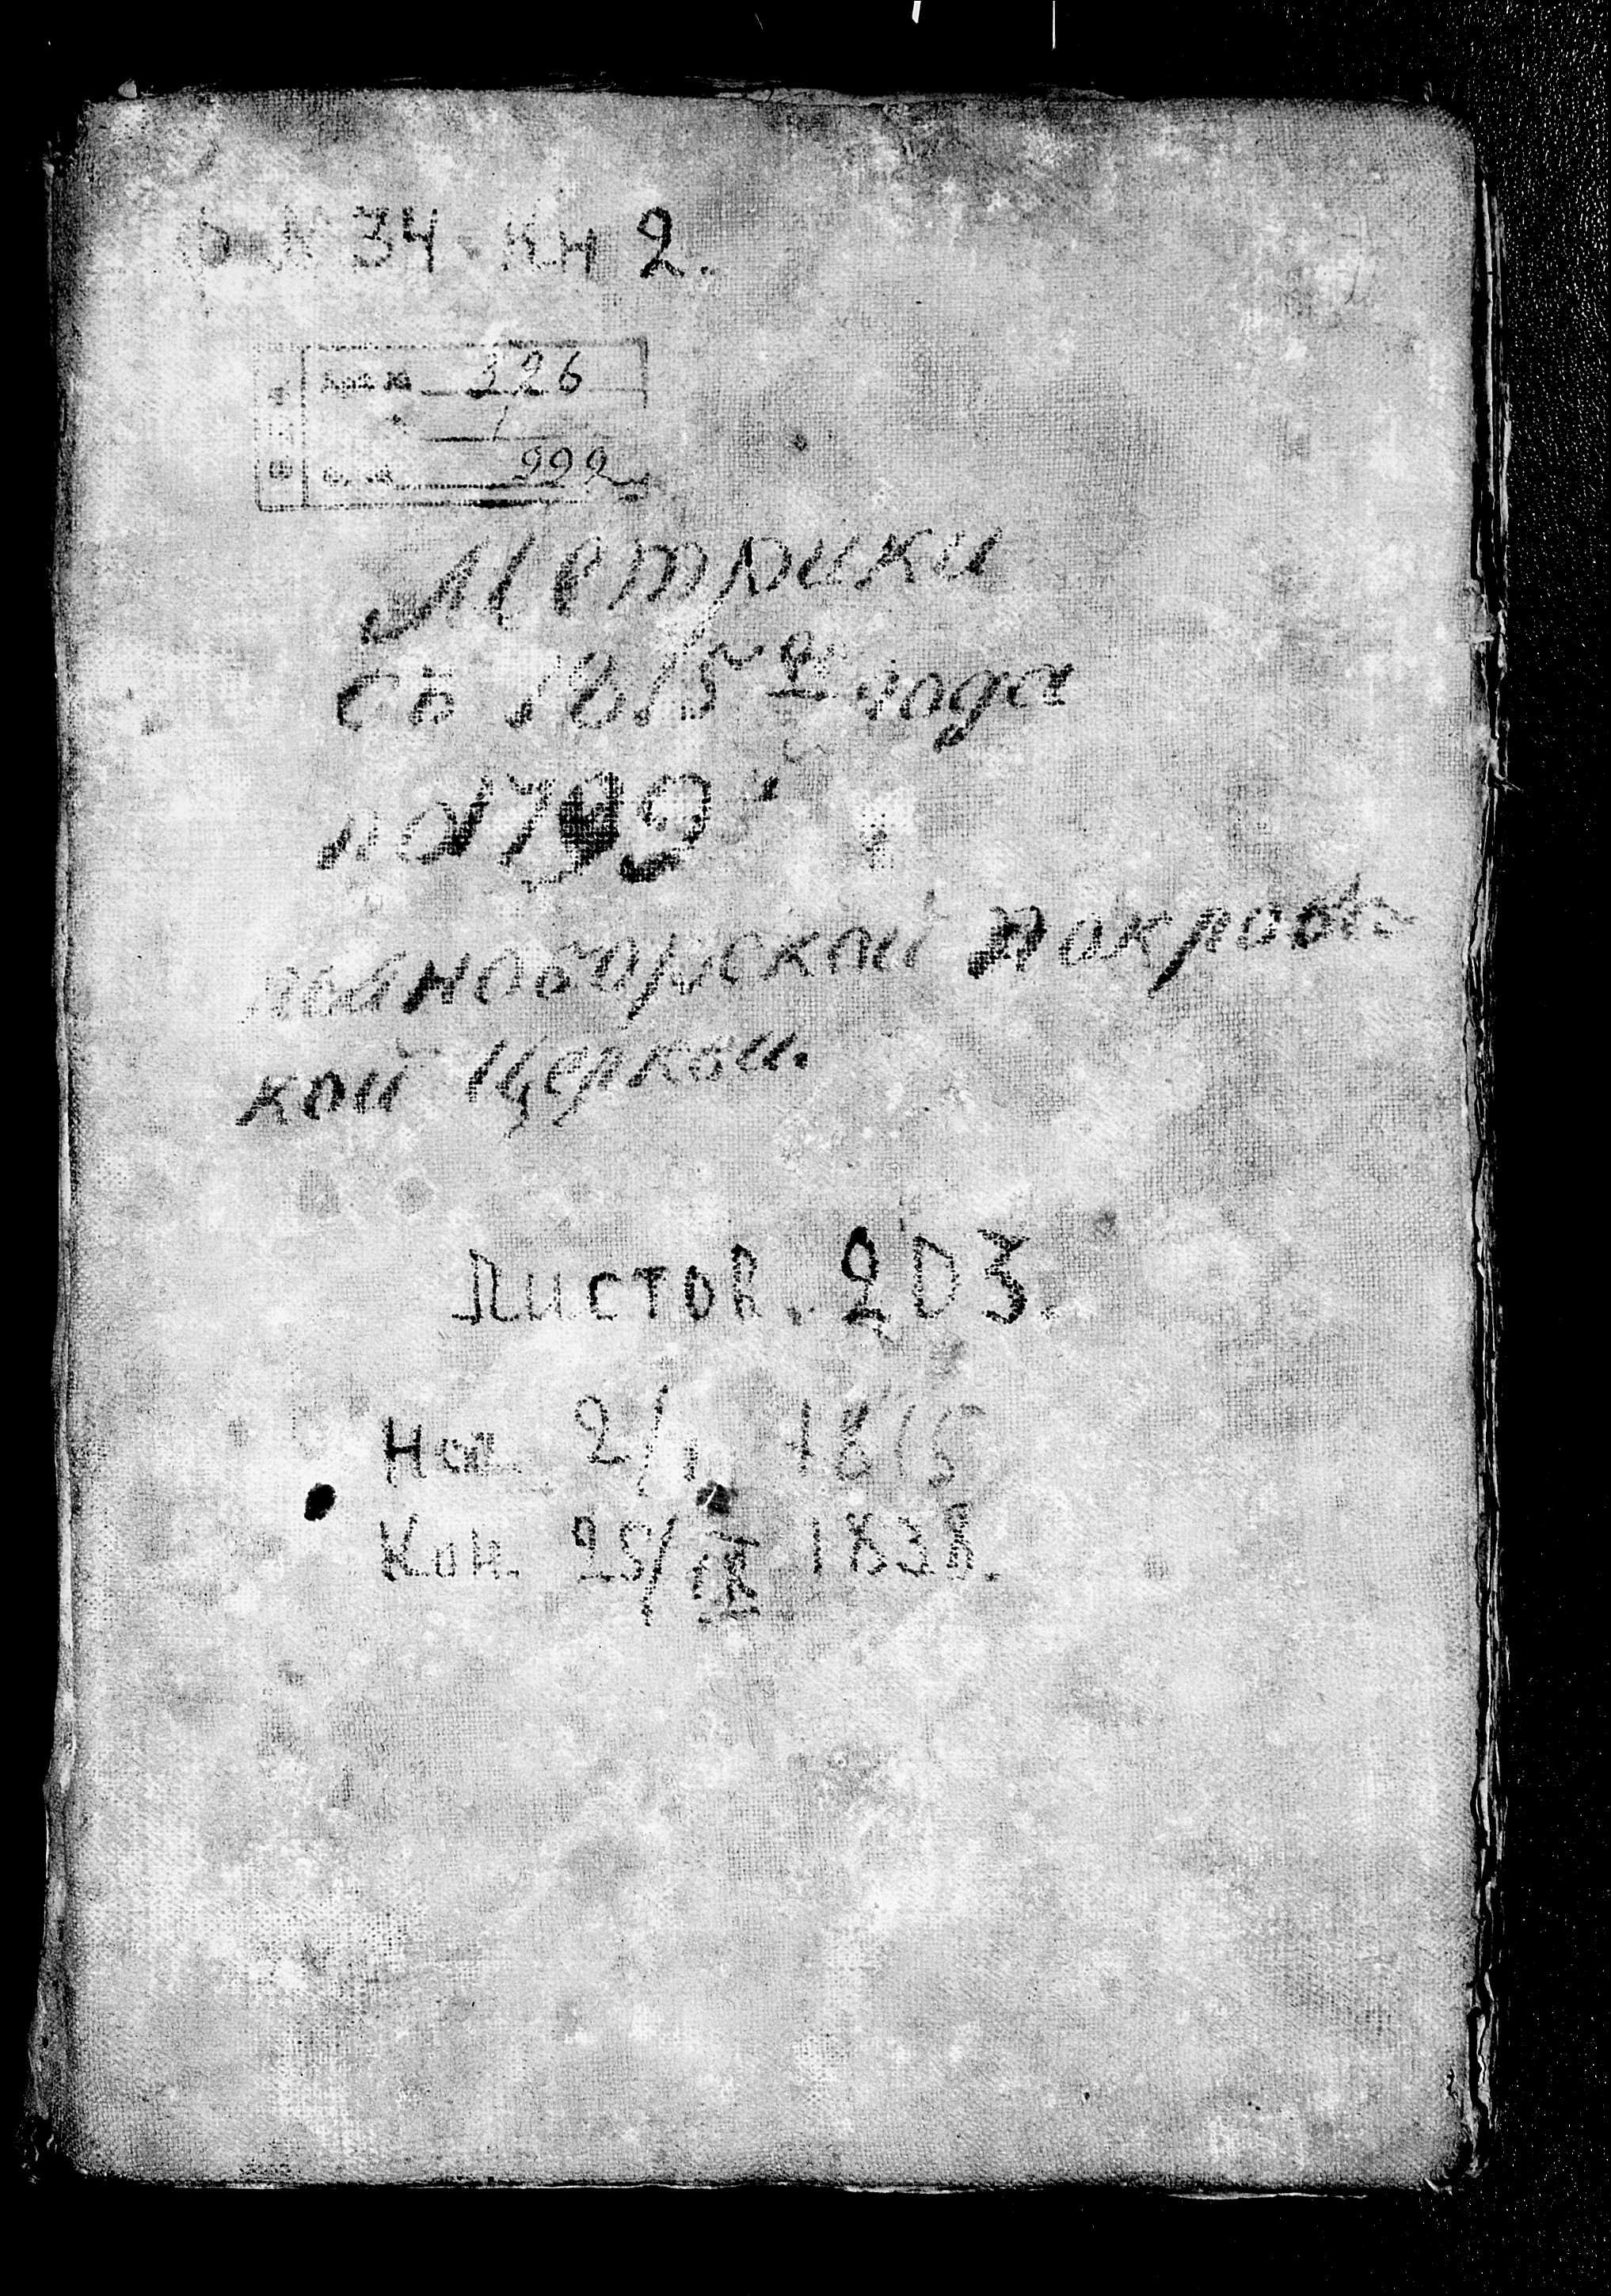 № 34 · Кн 2.
326
1
992
Метрики
съ 1815 го года
по 1799
Покровс
кой Церкви.
Листов. 203.
Нач. 2/I 1815
Кон. 25/IX 1838.